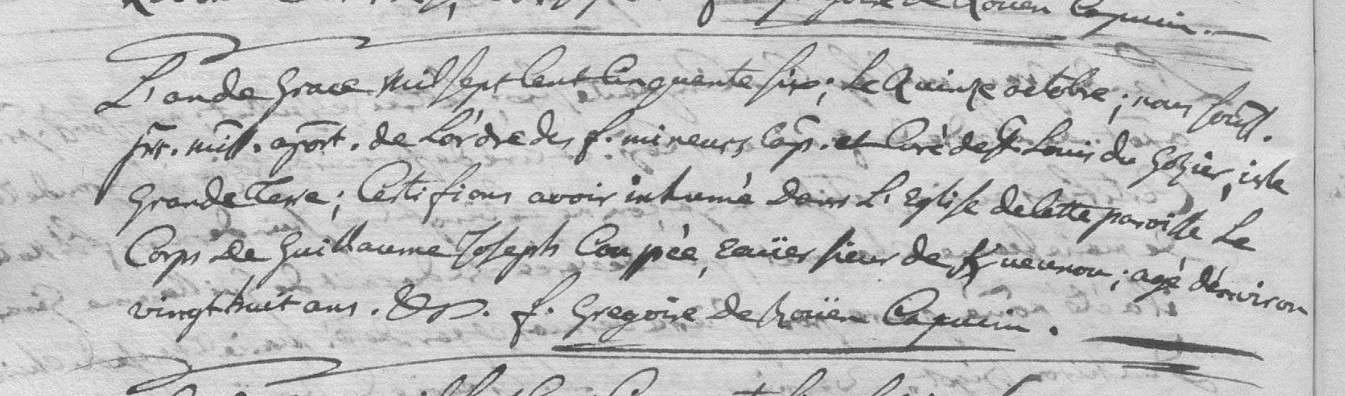 de Rouen Capucin.
L'an de Grace mil sept Cent Cinquante six; le Quinze octobre; nous souss.
prr. miss. apost. de L'ordre des f. mineurs Cap. et Curé de St. Louis du Gozier, isle
Grande Terre; Certifions avoir inhumé dans L'Eglise de Cette paroisse Le
Corps de Guillaume Joseph Coupée, sieur de ; agé d'environ
vingt huit ans. &. f. Gregoire de Roüen Capucin.